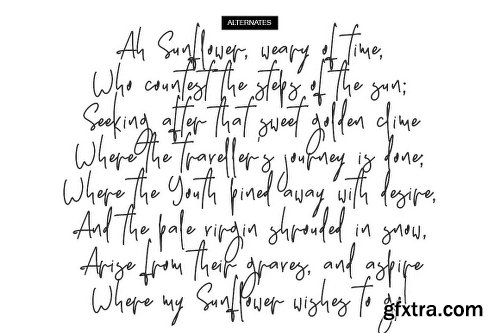 ALTERNATES
Ah Sunflower, weary of time,
Who countest the steps of the sun;
Seeking after that sweet golden clime
Where the travellers journey is done;
Where the Youth pined away with desire,
And the pale virgin shrouded in snow,
Arise from their graves, and aspire
Where my Sunflower wishes to go!
gfxtra.com